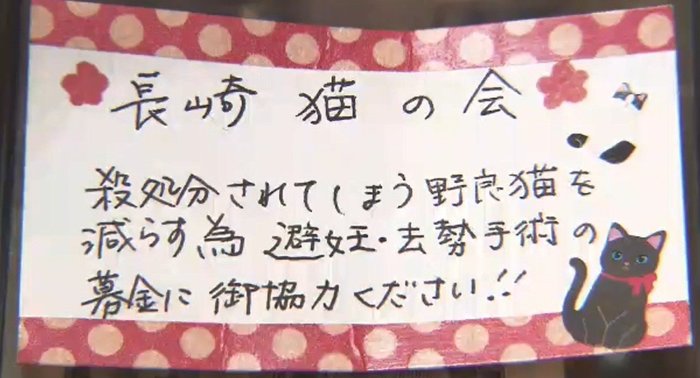 長崎 猫 の 会
殺処分されてしまう野良猫を
減らす為 避妊・去勢手術の
募金に 御協力ください!!